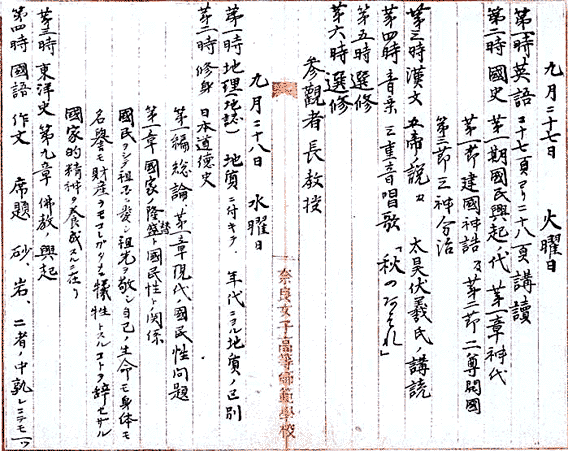 九月二十七日　火曜日
第一時 英語 二十七頁ヨリ二十八頁講讀
第二時 國史 第一期國民興起ノ代 第一章神代
第一節建國神話及第二節二尊開國
第三節三神分治
第三時漢文 五帝ノ説及 太昊伏羲氏 講読
第四時 音楽 三重音唱歌「秋のあはれ」
第五時 選修
第六時 選修
参觀者 長教授
奈良女子高等師範學校
九月二十八日　水曜日
第一時 地理(地誌) 地質ニ付キテ、年代ニヨル地質ノ区別
第二時 修身 日本道德史
第一編 総論 第一章現代ノ國民性問題
第一章 國家ノ隆盛ト國民性ト関係
國民ヲシテ祖国ヲ愛シ祖先ヲ敬シ自己ノ生命モ身体モ
名譽モ財産ヲモコレガタメニ犠牲トスルコトヲ辞セザル
國家的精神ヲ養成スルニ在リ
第三時 東洋史 第九章 佛教ノ興起
第四時 國語 作文 席題 砂、岩、二者ノ中孰レニテモ一ツ